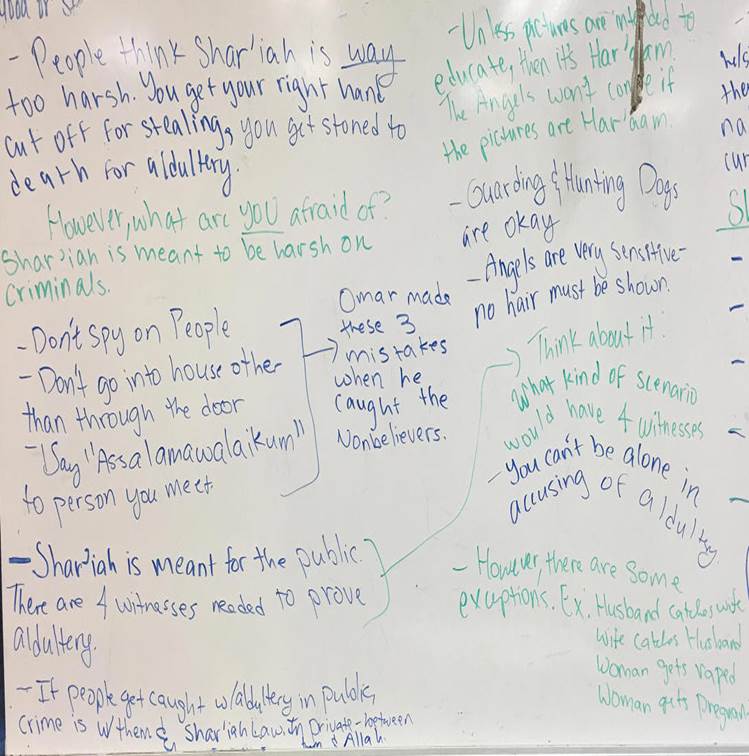 - People think Shar'iah is way
too harsh. You get your right hand
cut off for stealing, you get stoned to
death for aldultery.
However, what are you afraid of?
Shar'iah is meant to be harsh on
criminals.
- Don't spy on People
- Don't go into house other
than through the door
- Say "Assalamawalaikum"
to person you meet
Omar made
these 3
mistakes
when he
caught the
Nonbelievers.
- Shar'iah is meant for the public.
There are 4 witnesses needed to prove
aldultery.
- If people get caught w/aldultery in public,
crime is w/them & Shar'iah Law. In Private - between
them & Allah.
- Unless pictures are intended to
educate, then it's Har'aam.
The Angels won't come if
the pictures are Har'aam.
- Guarding & Hunting Dogs
are okay
- Angels are very sensitive-
no hair must be shown.
Think about it:
What kind of scenario
would have 4 witnesses
- you can't be alone in
accusing of aldultery
- However, there are some
exceptions. Ex: Husband catches wife
Wife catches Husband
Woman gets raped
Woman gets Pregnan
the
na
cur